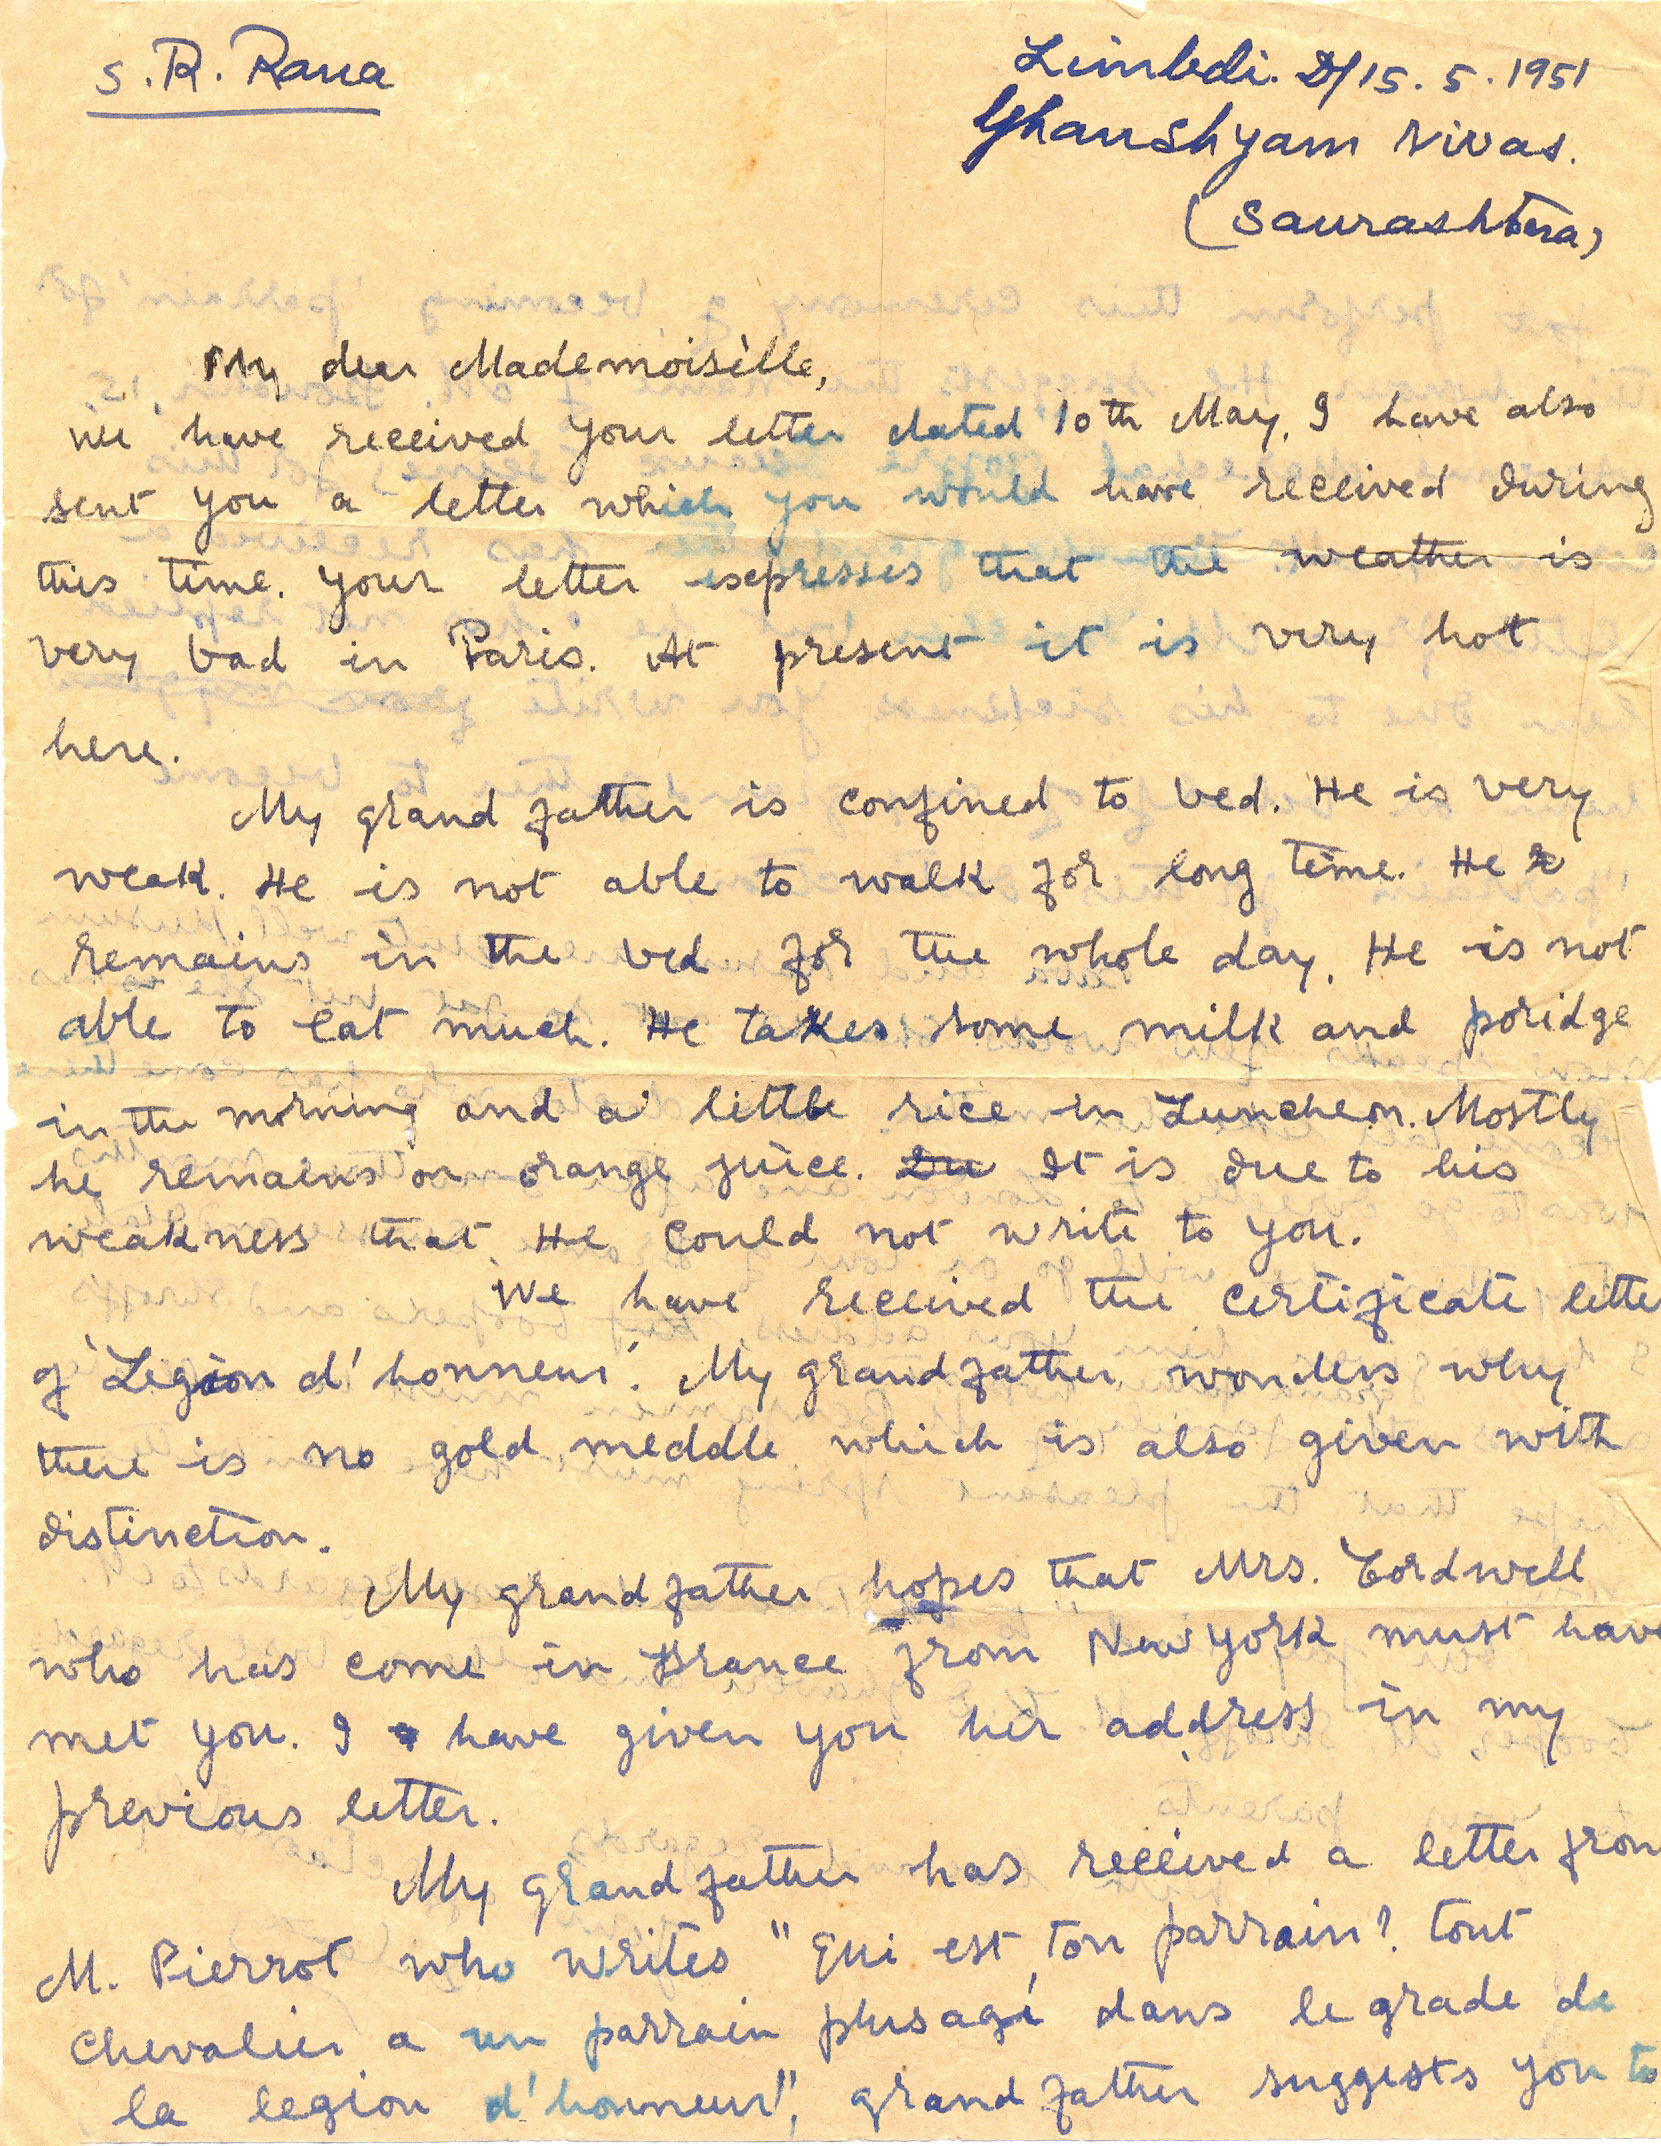 S. R. Rana
Limbdi. D/15. 5. 1951
Ghanshyam Nivas.
(Saurashtra)
My dear Mademoisèlle,
We have received your letter dated 10th May, I have also
sent you a letter which you would have received during
this time. Your letter expresses that the weather is
very bad in Paris. At present it is very hot
here.
My grand father is confined to bed. He is very
weak. He is not able to walk for long time. He
remains in the bed for the whole day. He is not
able to eat much. He takes some milk and poridge
in the morning and a little rice in Luncheon. Mostly
he remains on orange juice. It is due to his
weakness that He could not write to you.
We have received the certificate lette
of 'Legion d'honneur'. My grandfather wonders why
there is no gold meddle which is also given with
distinction.
My grandfather hopes that Mrs. Cordwell
who has come in France from New York must have
met you. I have given you her address in my
previous letter.
My grandfather has received a letter from
M. Pierrot who writes "Qui est ton parrain? tout
chevalier a un parrain plus agé dans le grade de
la legion d'honneur", grandfather suggests you to